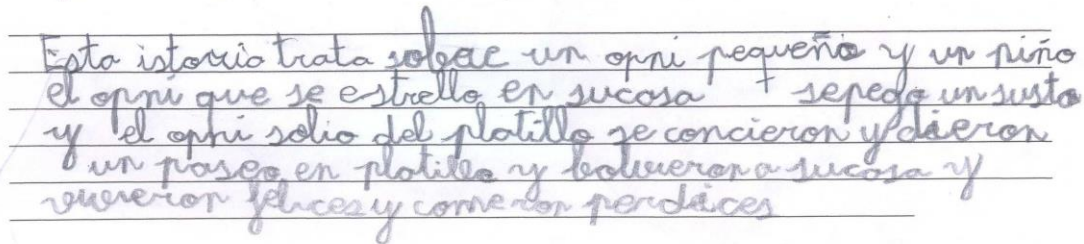 Esta istoria trata sobre un opni pequeño y un niño
el opni que se estrello en sucasa y sepego un susto
y el opni salio del platillo se concieron y dieron
un paseo en platillo y bolvieron a sucasa y
vivieron felices y comieron perdices